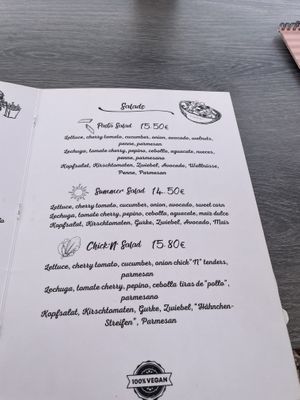 Salads
Pasta Salad 15.50€
Lettuce, cherry tomato, cucumber, onion, avocado, walnuts,
penne, parmesan
Lechuga, tomate cherry, pepino, cebolla, aguacate, nueces,
penne, parmesano
Kopfsalat, Kirschtomaten, Zwiebel, Avocado, Wallnüsse,
Penne, Parmesan
Summer Salad 14.50€
Lettuce, cherry tomato, cucumber, onion, avocado, sweet corn
Lechuga, tomate cherry, pepino, cebolla, aguacate, maíz dulce
Kopfsalat, Kirschtomaten, Gurke, Zwiebel, Avocado, Mais
Chick'N' Salad 15.80€
Lettuce, cherry tomato, cucumber, onion chick"N" tenders,
parmesan
Lechuga, tomate cherry, pepino, cebolla tiras de "pollo",
parmesano
Kopfsalat, Kirschtomaten, Gurke, Zwiebel, "Hähnchen-
Streifen", Parmesan
100% VEGAN